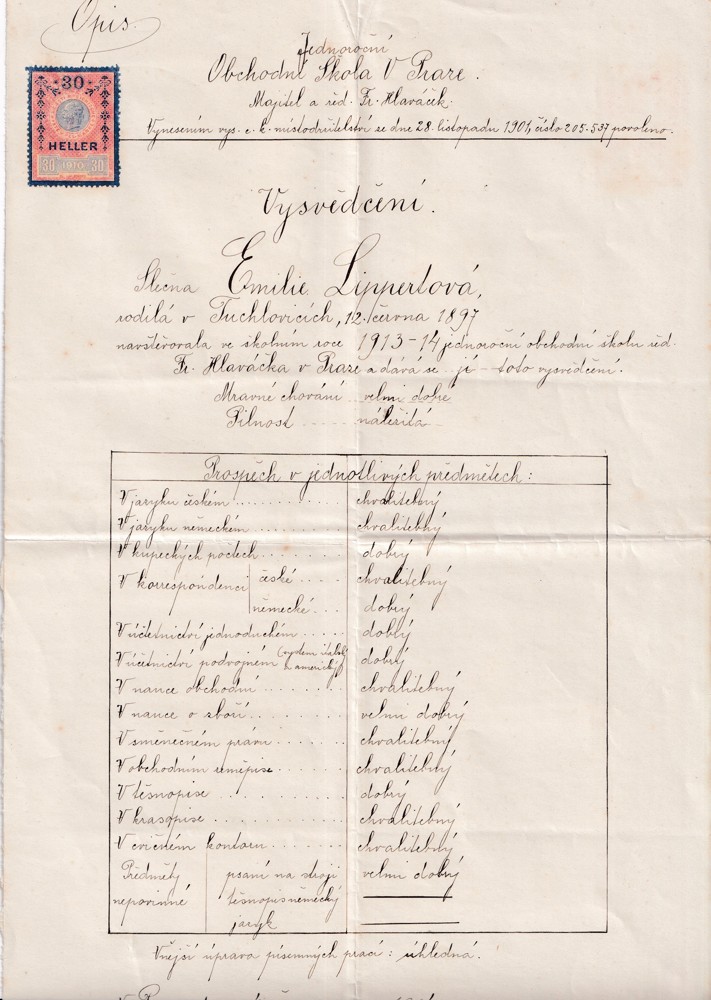 Opis.
30
HELLER
30 1910 30
Jednoroční
Obchodní Škola V Praze.
Majitel a řed. Fr. Hlaváček.
Vynesením vys. c. k. místodržitelství ze dne 28. listopadu 1901, číslo 205.537 povoleno.
Vysvědčení.
Slečna Emilie Lippertová,
rodilá v Tuchlovicích, 12. června 1897
navštěvovala ve školním roce 1913-14 jednoroční obchodní školu řed.
Fr. Hlaváčka v Praze a dává se jí toto vysvědčení.
Mravné chování velmi dobré
Pilnost náležitá
Prospěch v jednotlivých předmětech:
V jazyku českém chvalitebný
V jazyku německém chvalitebný
V kupeckých počtech dobrý
V korrespondenci české chvalitebný
německé dobrý
V účetnictví jednoduchém dobrý
V účetnictví podvojném (system italský a americký) dobrý
V nauce obchodní chvalitebný
V nauce o zboží velmi dobrý
V směnečném právu chvalitebný
V obchodním zeměpise chvalitebný
V těsnopise dobrý
V krasopise chvalitebný
V cvičném kontoru chvalitebný
Předměty nepovinné psaní na stroji velmi dobrý
těsnopis německý
jazyk
Vnější úprava písemných prací: úhledná.